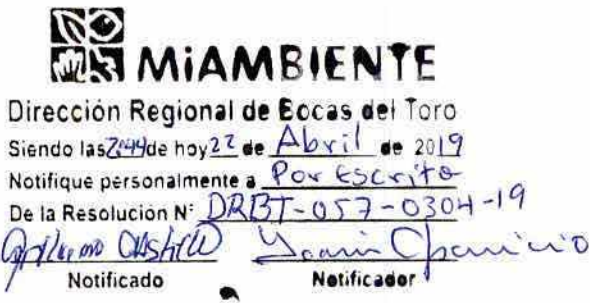 MiAMBIENTE
Dirección Regional de Bocas del Toro
Siendo las 2:44 de hoy 22 de Abril de 2019
Notifique personalmente a Por Escrito
De la Resolución N° DRBT-057-0304-19
Guillermo Castillo
Notificado Notificador